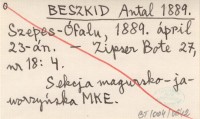 BESZKID Antal 1889.
Szepes-Ófalu, 1889. április
23-án. — Zipser Bote 27,
nr 18: 4.
Sekcja magursko-ja-
worzyńska MKE.